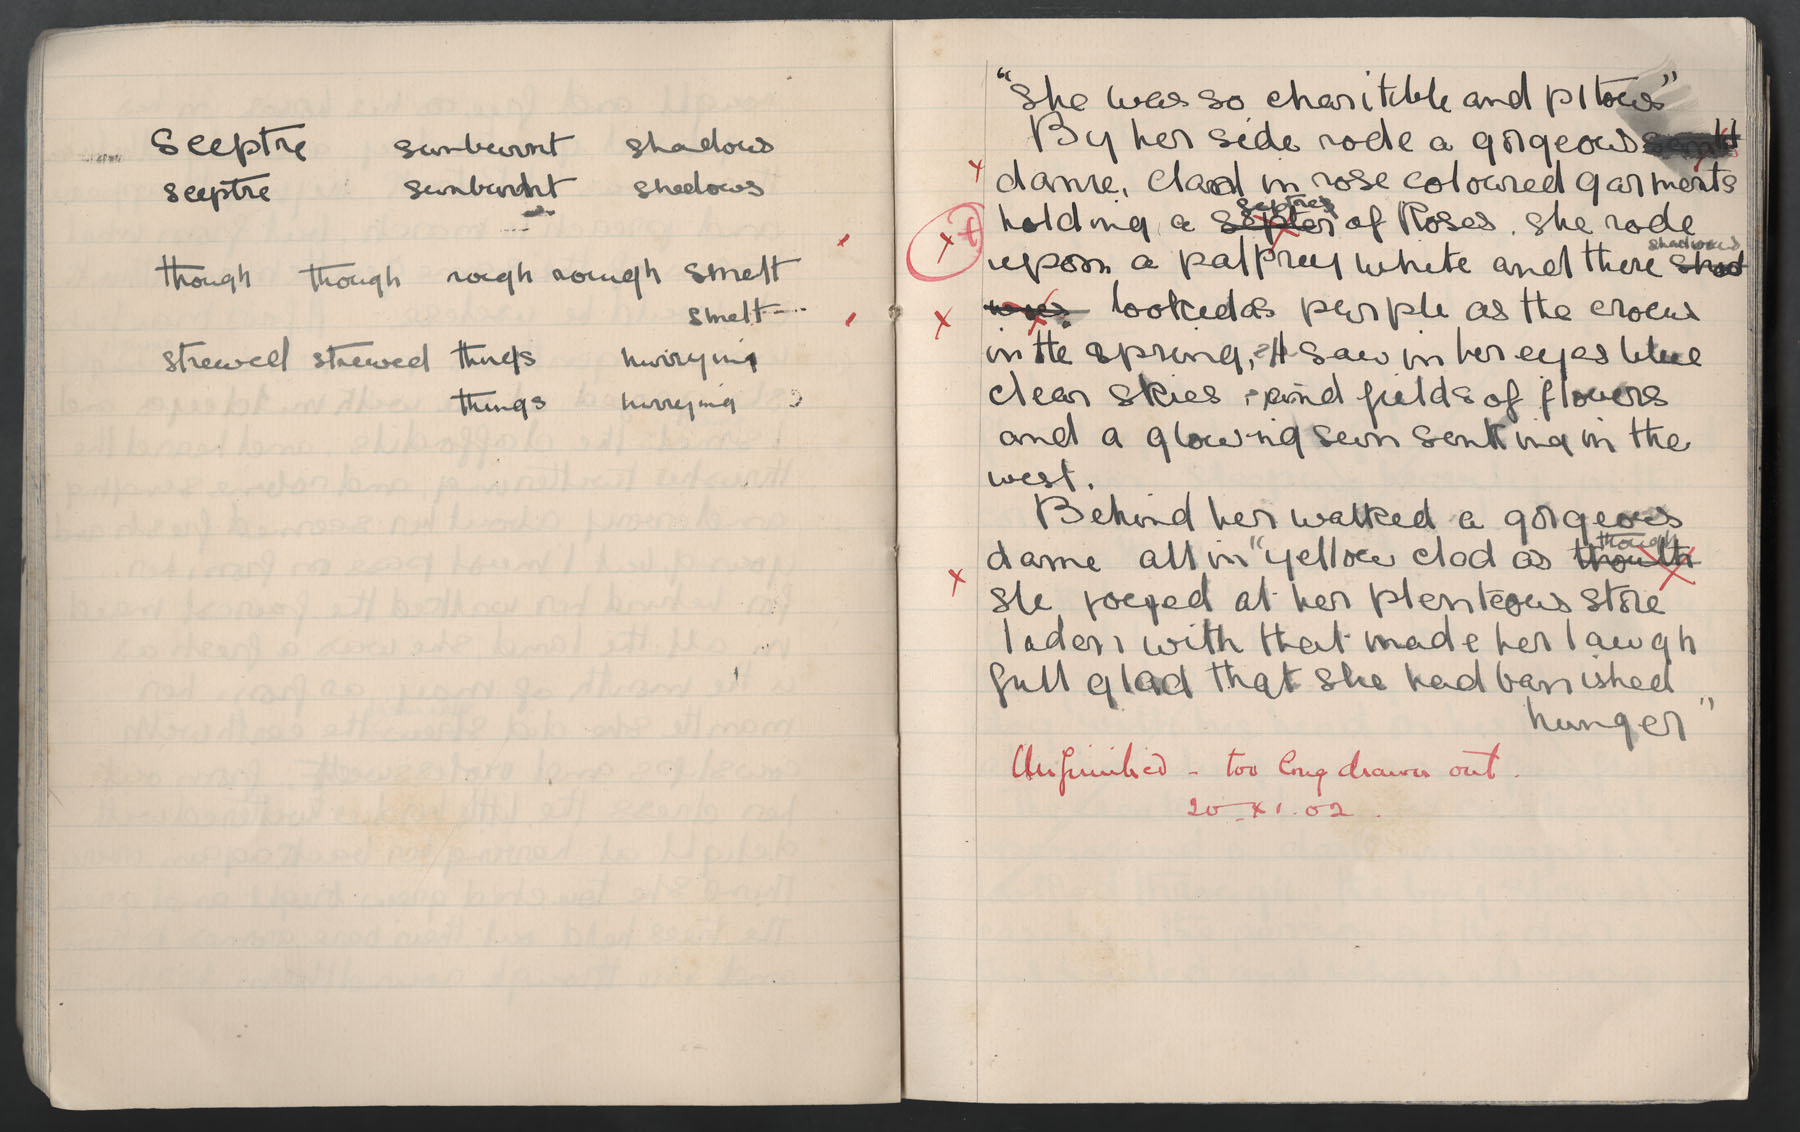 Sceptre sunburnt shadows
sceptre sunburnt shadows
though though rough rough smelt
smelt
strewed strewed things hurrying
things hurrying
"She was so charitible and pitous"
By her side rode a gorgeous
dame, clad in rose coloured garments
septres
holding a septer of Roses. she rode
shadows
upon a palprey white and there shad
ows looked as purple as the crocus
in the spring, I saw in her eyes blue
clear skies and fields of flowers
and a glowing sun senking in the
west.
Behind her walked a gorgeous
though
dame all in "yellow clad as thouth
she joeyed at her plenteous store
laden with that made her laugh
full glad that she had banished
hunger"
Unfinished - too long drawn out.
20.XI.02.